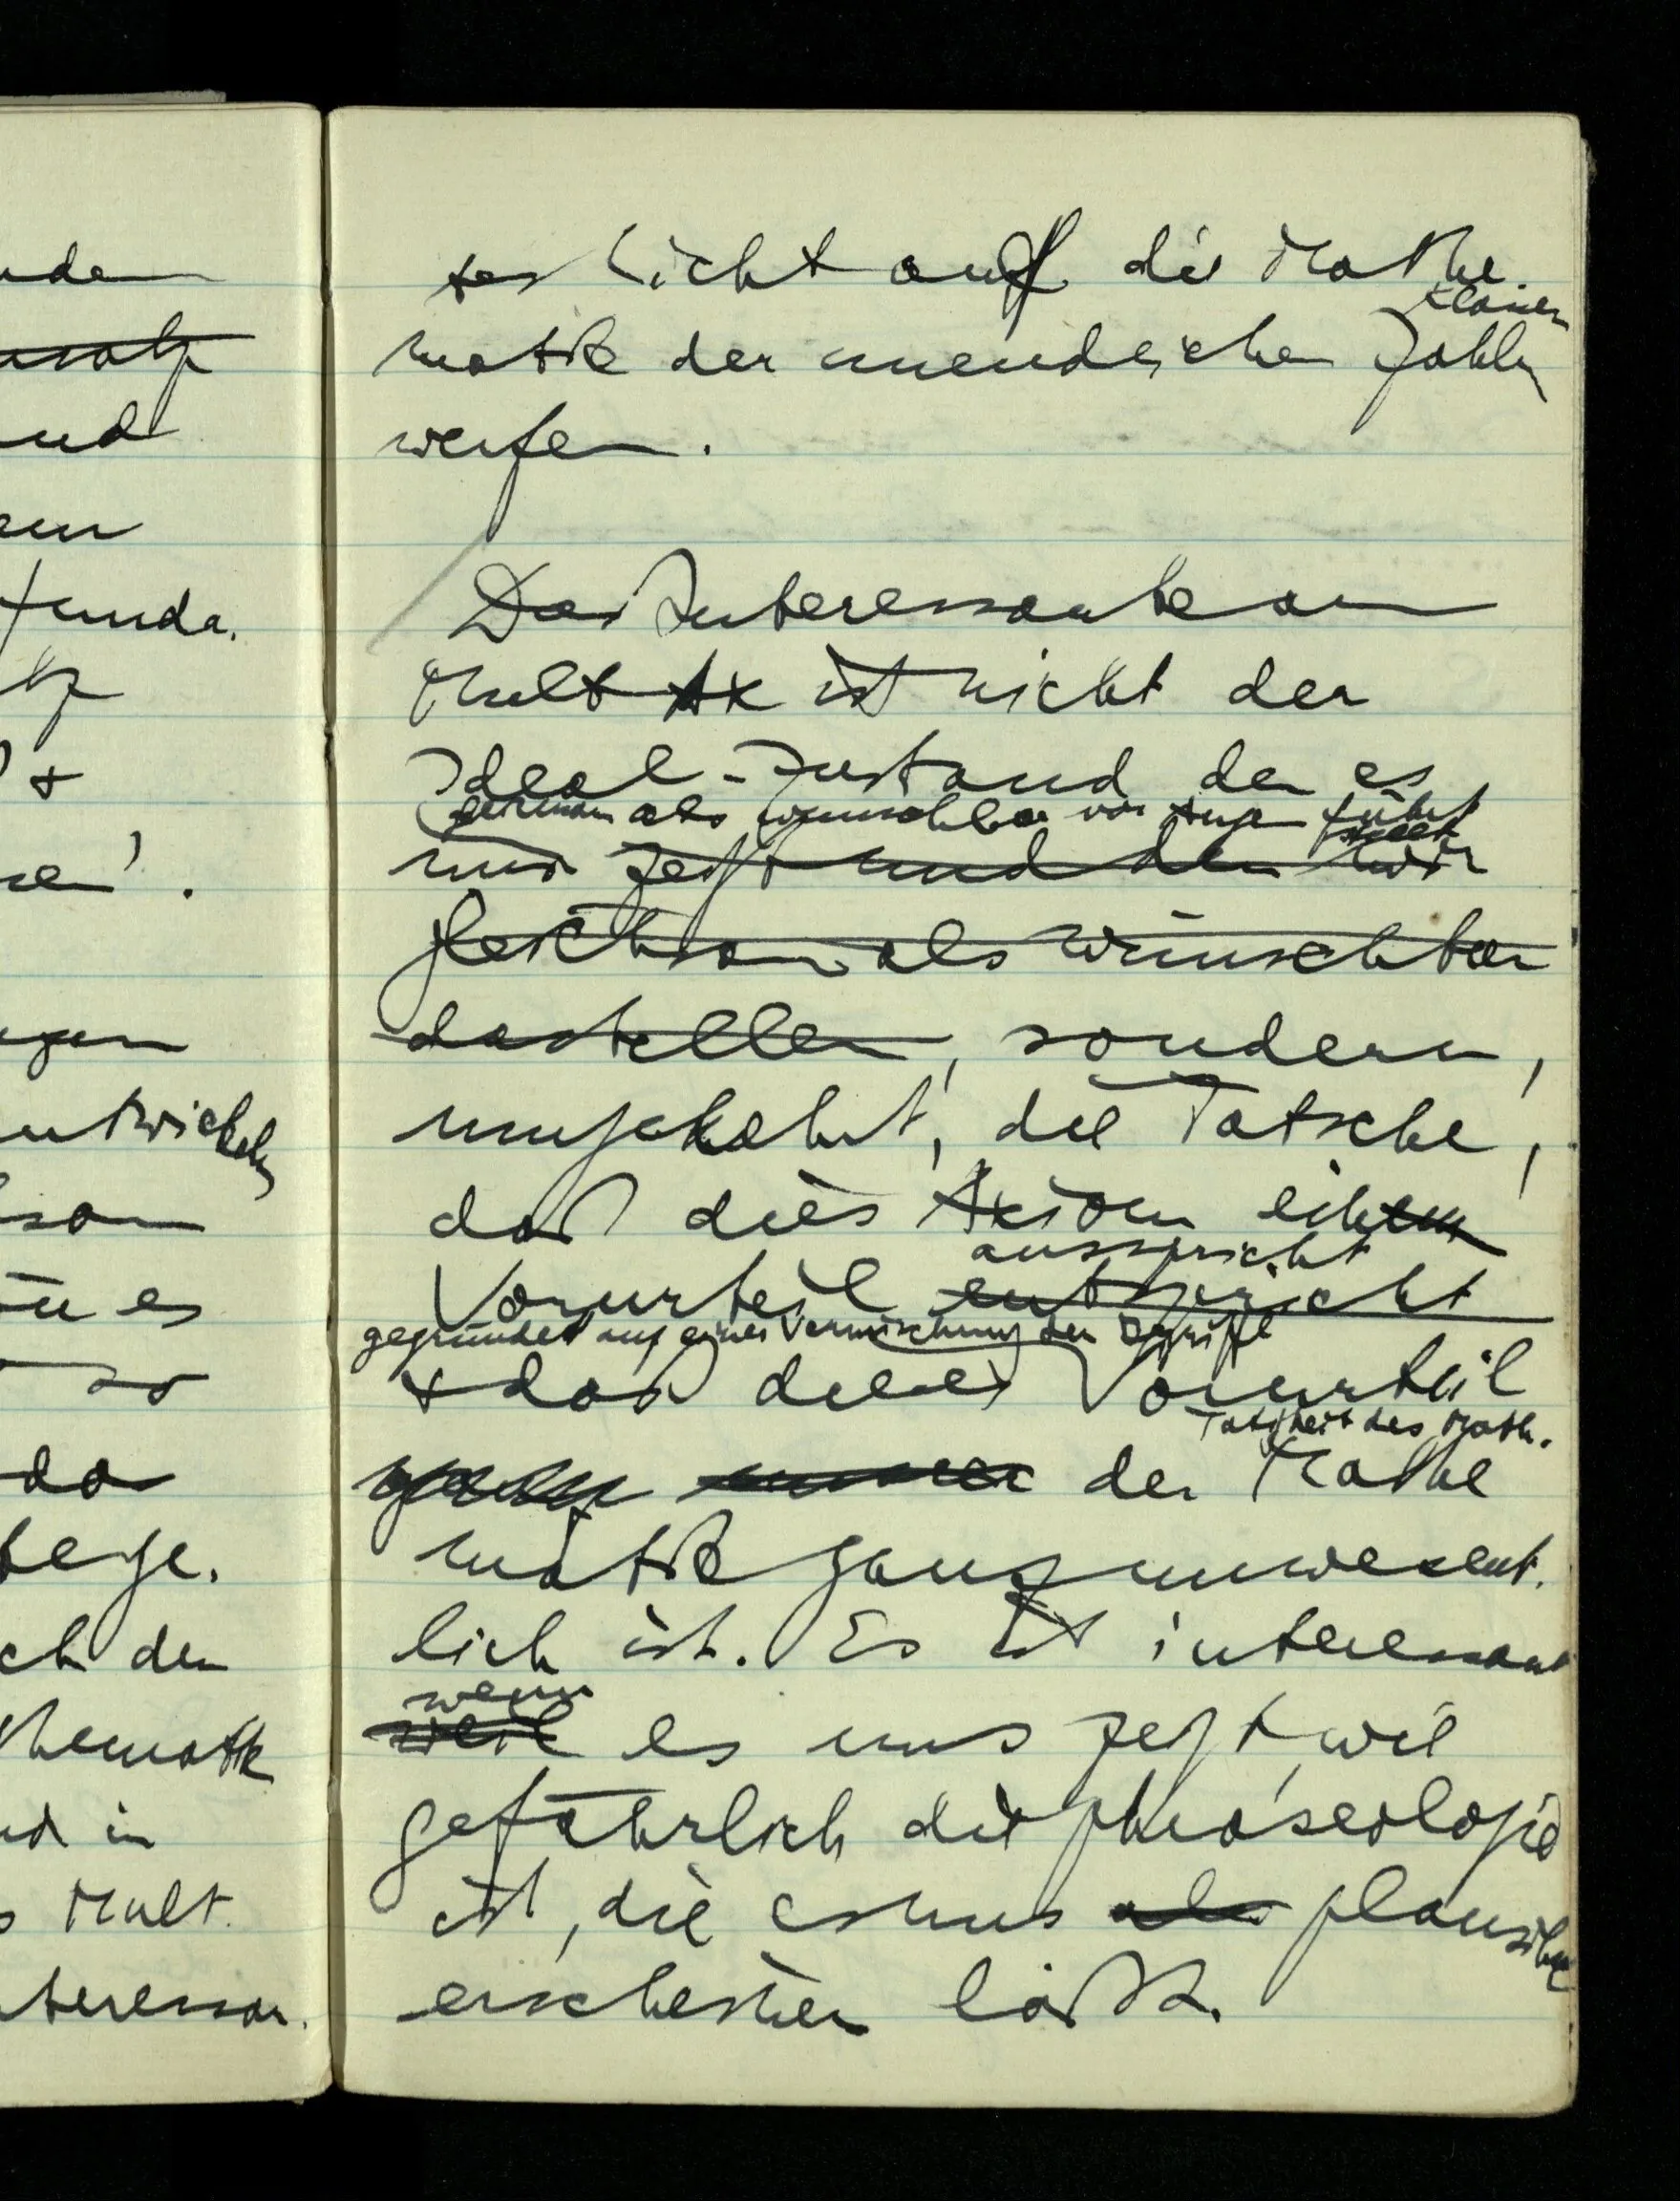 nden
und
funda.
+
entwickeln
so
da
ch den
thematik
nd in
s Mult.
nteressan.
tes Licht auf die Mathe
klassen
matik der unendlichen Zahlen
werfen.
Das Interessante am
Mult Ax ist nicht der
Ideal-Zustand den es
gleichsam als wünschbar vor Augen führt
stellt
uns zeigt und den wir
gleichsam als wünschbar
darstellen, sondern,
umgekehrt, die Tatsche,
daß dies Axiom einem
ausspricht
Vorurteil entspricht
gegründet auf einer Vermischung der Begriffe
+ daß dieses Vorurteil
Tätigkeit des Math.
der Mathe
matik ganz unwesent.
lich ist. Es ist interessant
wenn
weil es uns zeigt, wie
gefährlich die Phraseologie
ist, die es uns als plausibel
erscheinen läßt.